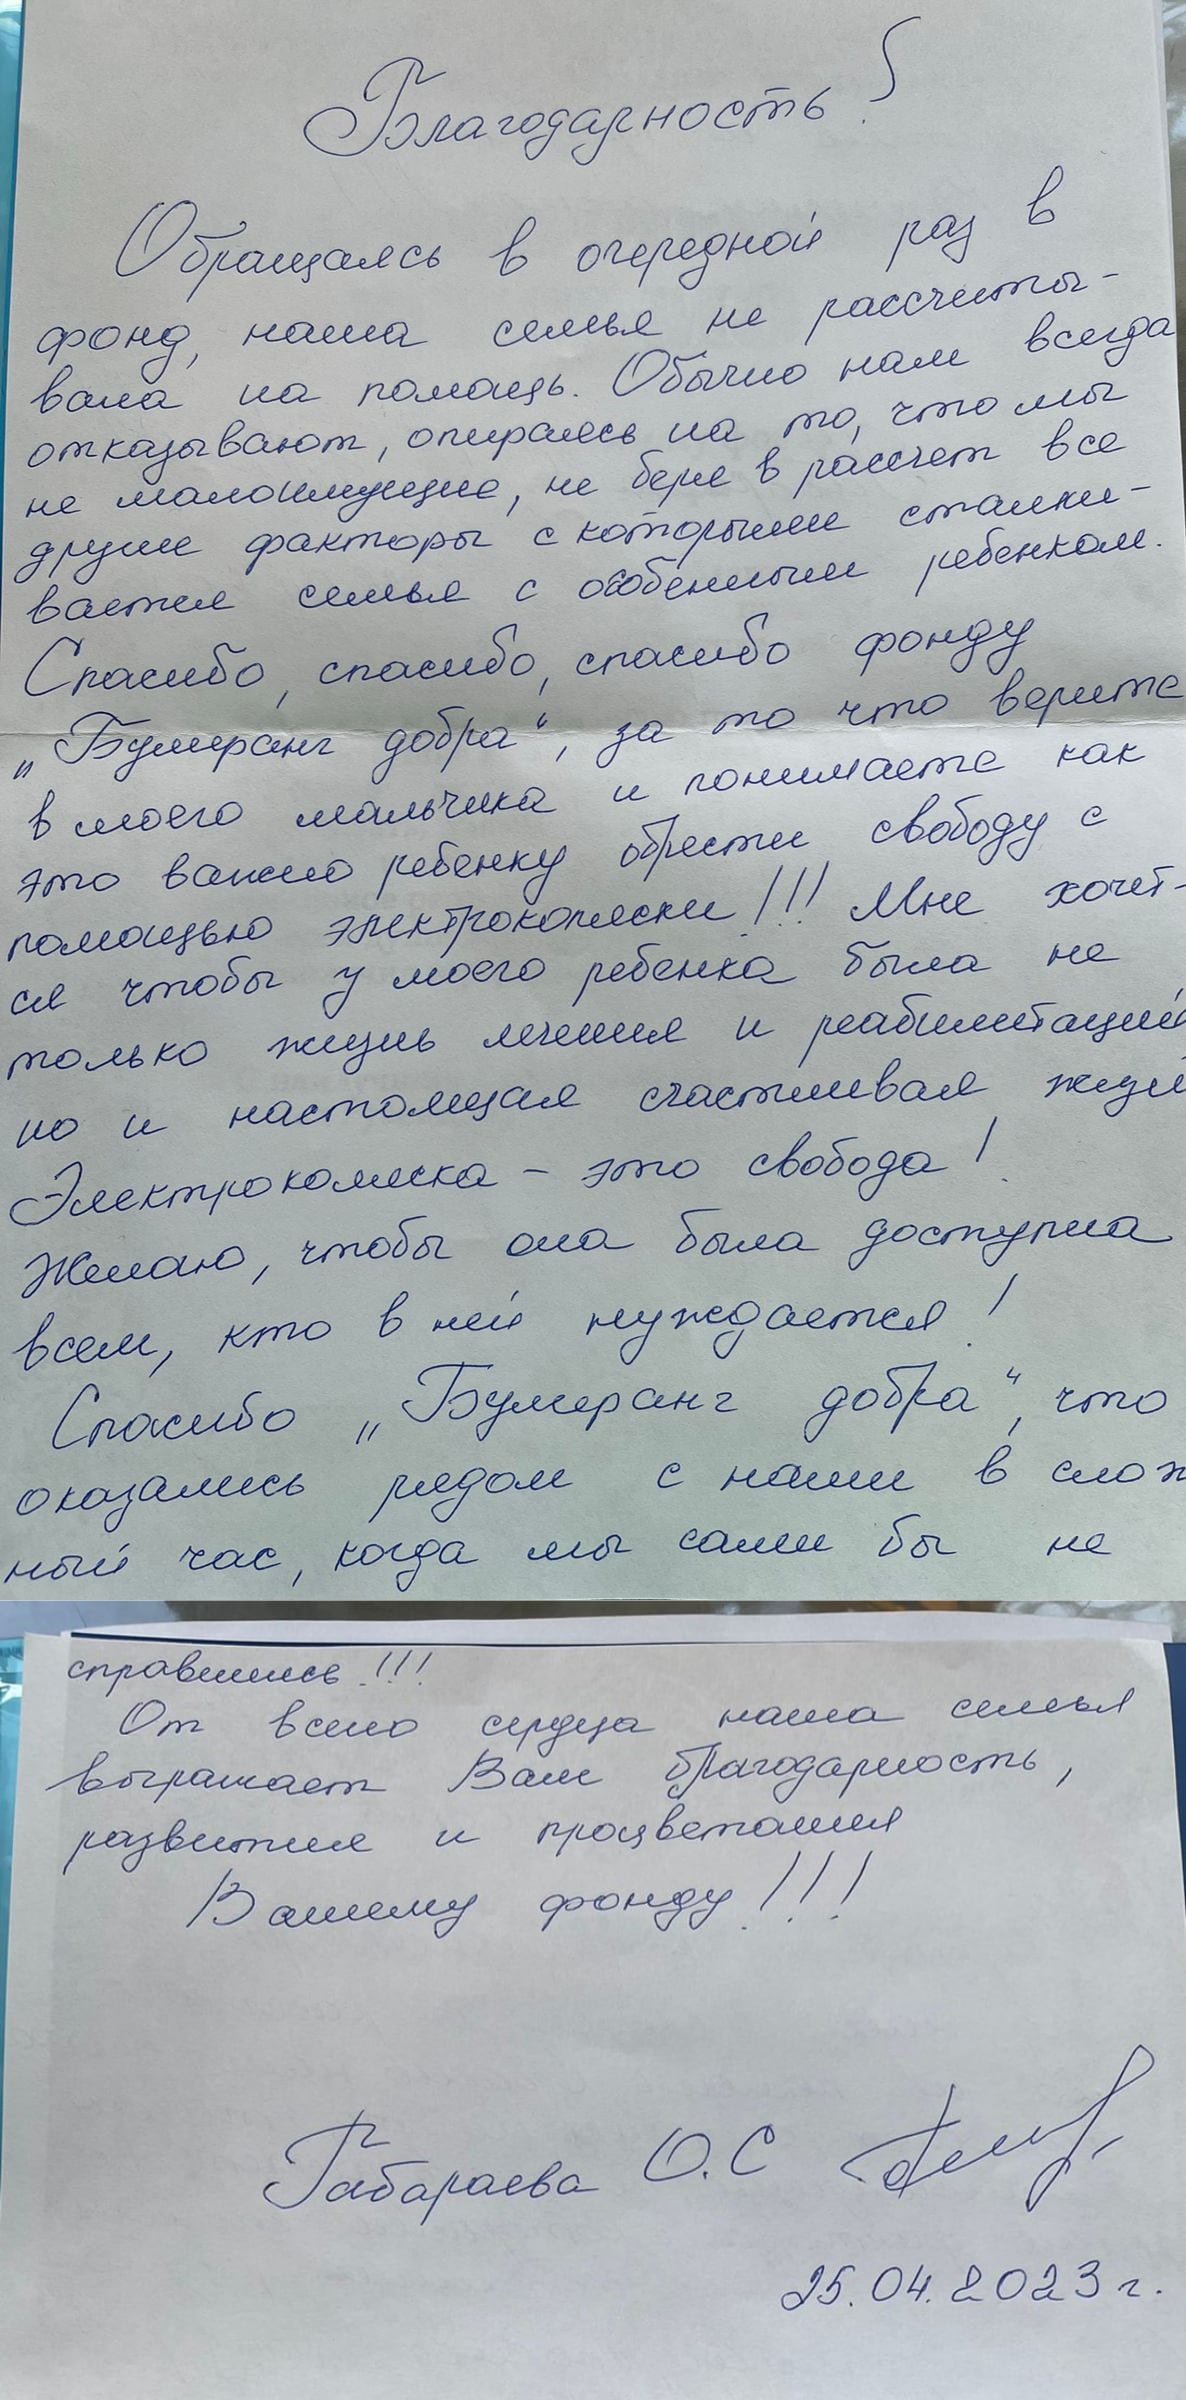 Благодарность!
Обращаясь в очередной раз в
фонд, наша семья не рассчиты-
вала на помощь. Обычно нам всегда
отказывают, опираясь на то, что мы
не малоимущие, не беря в рассчет все
другие факторы с которыми сталки-
вается семья с особенным ребенком.
Спасибо, спасибо, спасибо фонду
„Бумеранг добра“, за то что верите
в моего мальчика и понимаете как
это важно ребенку обрести свободу с
помощью электроколяски!!! Мне хочет-
ся чтобы у моего ребенка была не
только жизнь лечения и реабилитаций
но и настоящая счастливая жизн
Электроколяска – это свобода!
Желаю, чтобы она была доступна
всем, кто в ней нуждается!
Спасибо „Бумеранг добра“, что
оказались рядом с нами в слож
ный час, когда мы сами бы не
справились!!!
От всего сердца наша семья
выражает Вам благодарность,
развития и процветания
Вашему фонду!!!
Габараева О.С
25.04.2023 г.